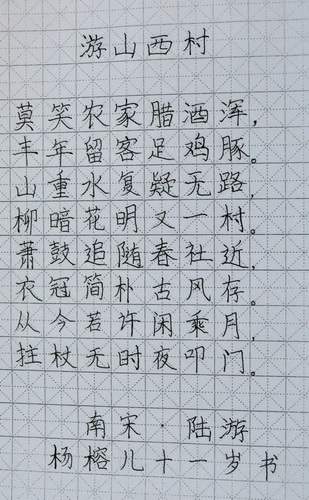 游山西村
莫笑农家腊酒浑，
丰年留客足鸡豚。
山重水复疑无路，
柳暗花明又一村。
萧鼓追随春社近，
衣冠简朴古风存。
从今若许闲乘月，
拄杖无时夜叩门。
南宋·陆游
杨榕儿十一岁书